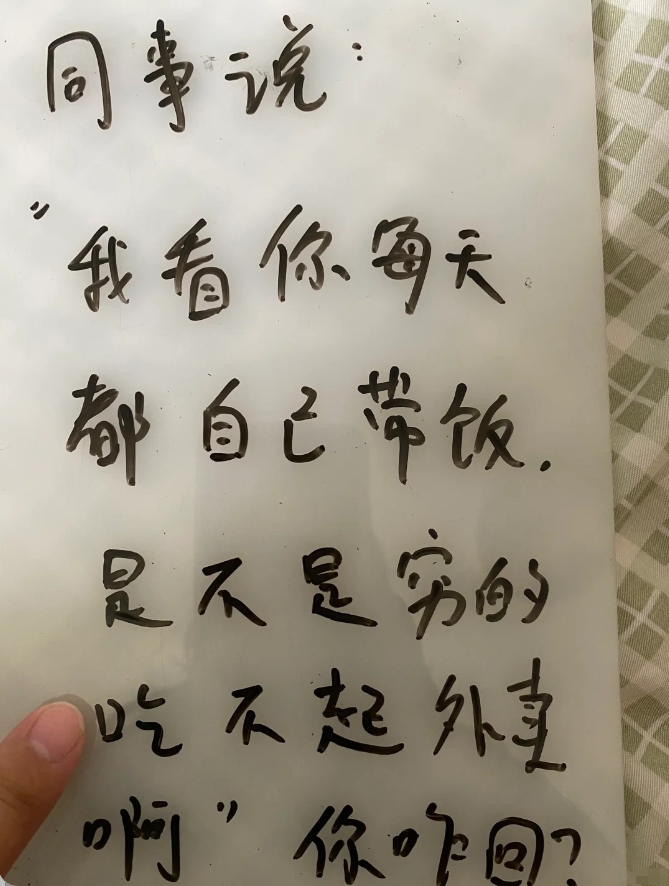 同事说：
“我看你每天
都自己带饭.
是不是穷的
吃不起外卖
啊”你咋回?